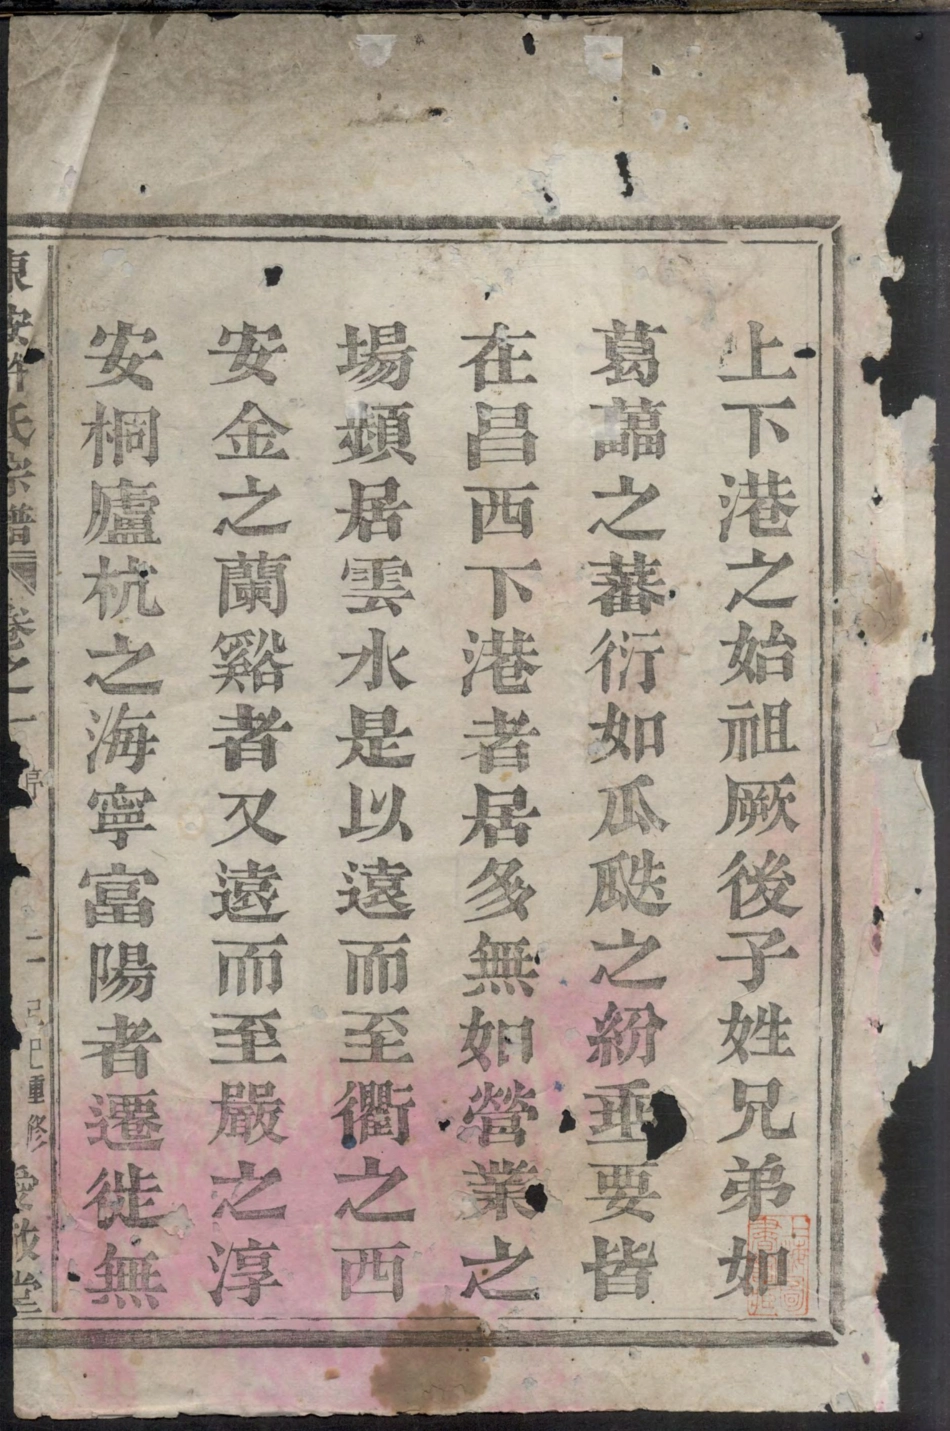 上下港之始祖厥後子姓兄弟如
葛藟之蕃衍如瓜瓞之紛垂要皆
在昌西下港者居多無如營業之
場頗居雲水是以遠而至衢之西
安金之蘭谿者又遠而至嚴之淳
安桐廬杭之海寧富陽者遷徙無
東安許氏宗譜 卷之一 二 己巳重修 愛敬堂